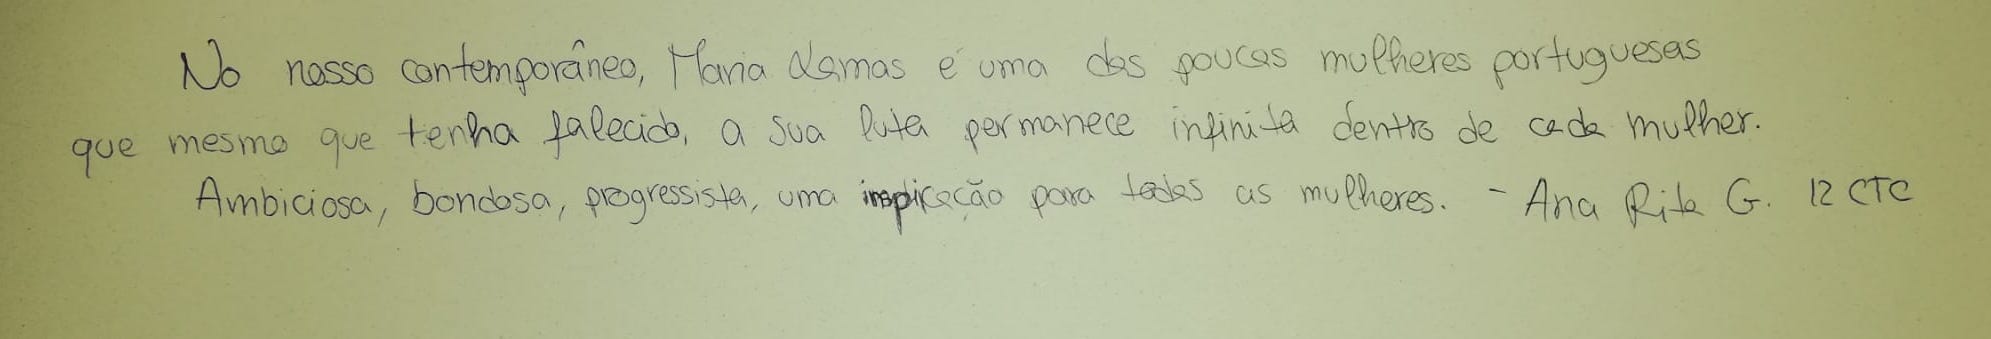 No nosso contemporâneo, Maria Lamas é uma das poucas mulheres portuguesas
que mesmo que tenha falecido, a sua luta permanece infinita dentro de cada mulher.
Ambiciosa, bondosa, progressista, uma para todas as mulheres. - Ana Rita G. 12 CTC